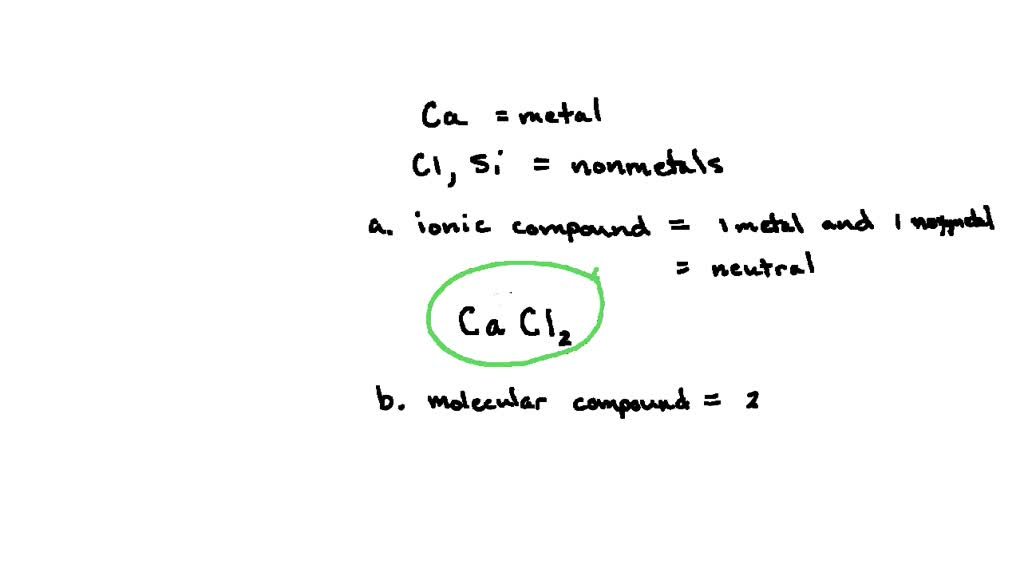 Ca = metal
Cl, Si = nonmetals
a. ionic compound = 1 metal and 1
= neutral
CaCl₂
b. molecular compound = 2